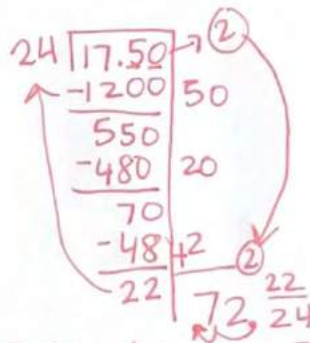 24 17.50 → 2
-1200 50
550
-480 20
70
-48 +2 2
22 72 22/24